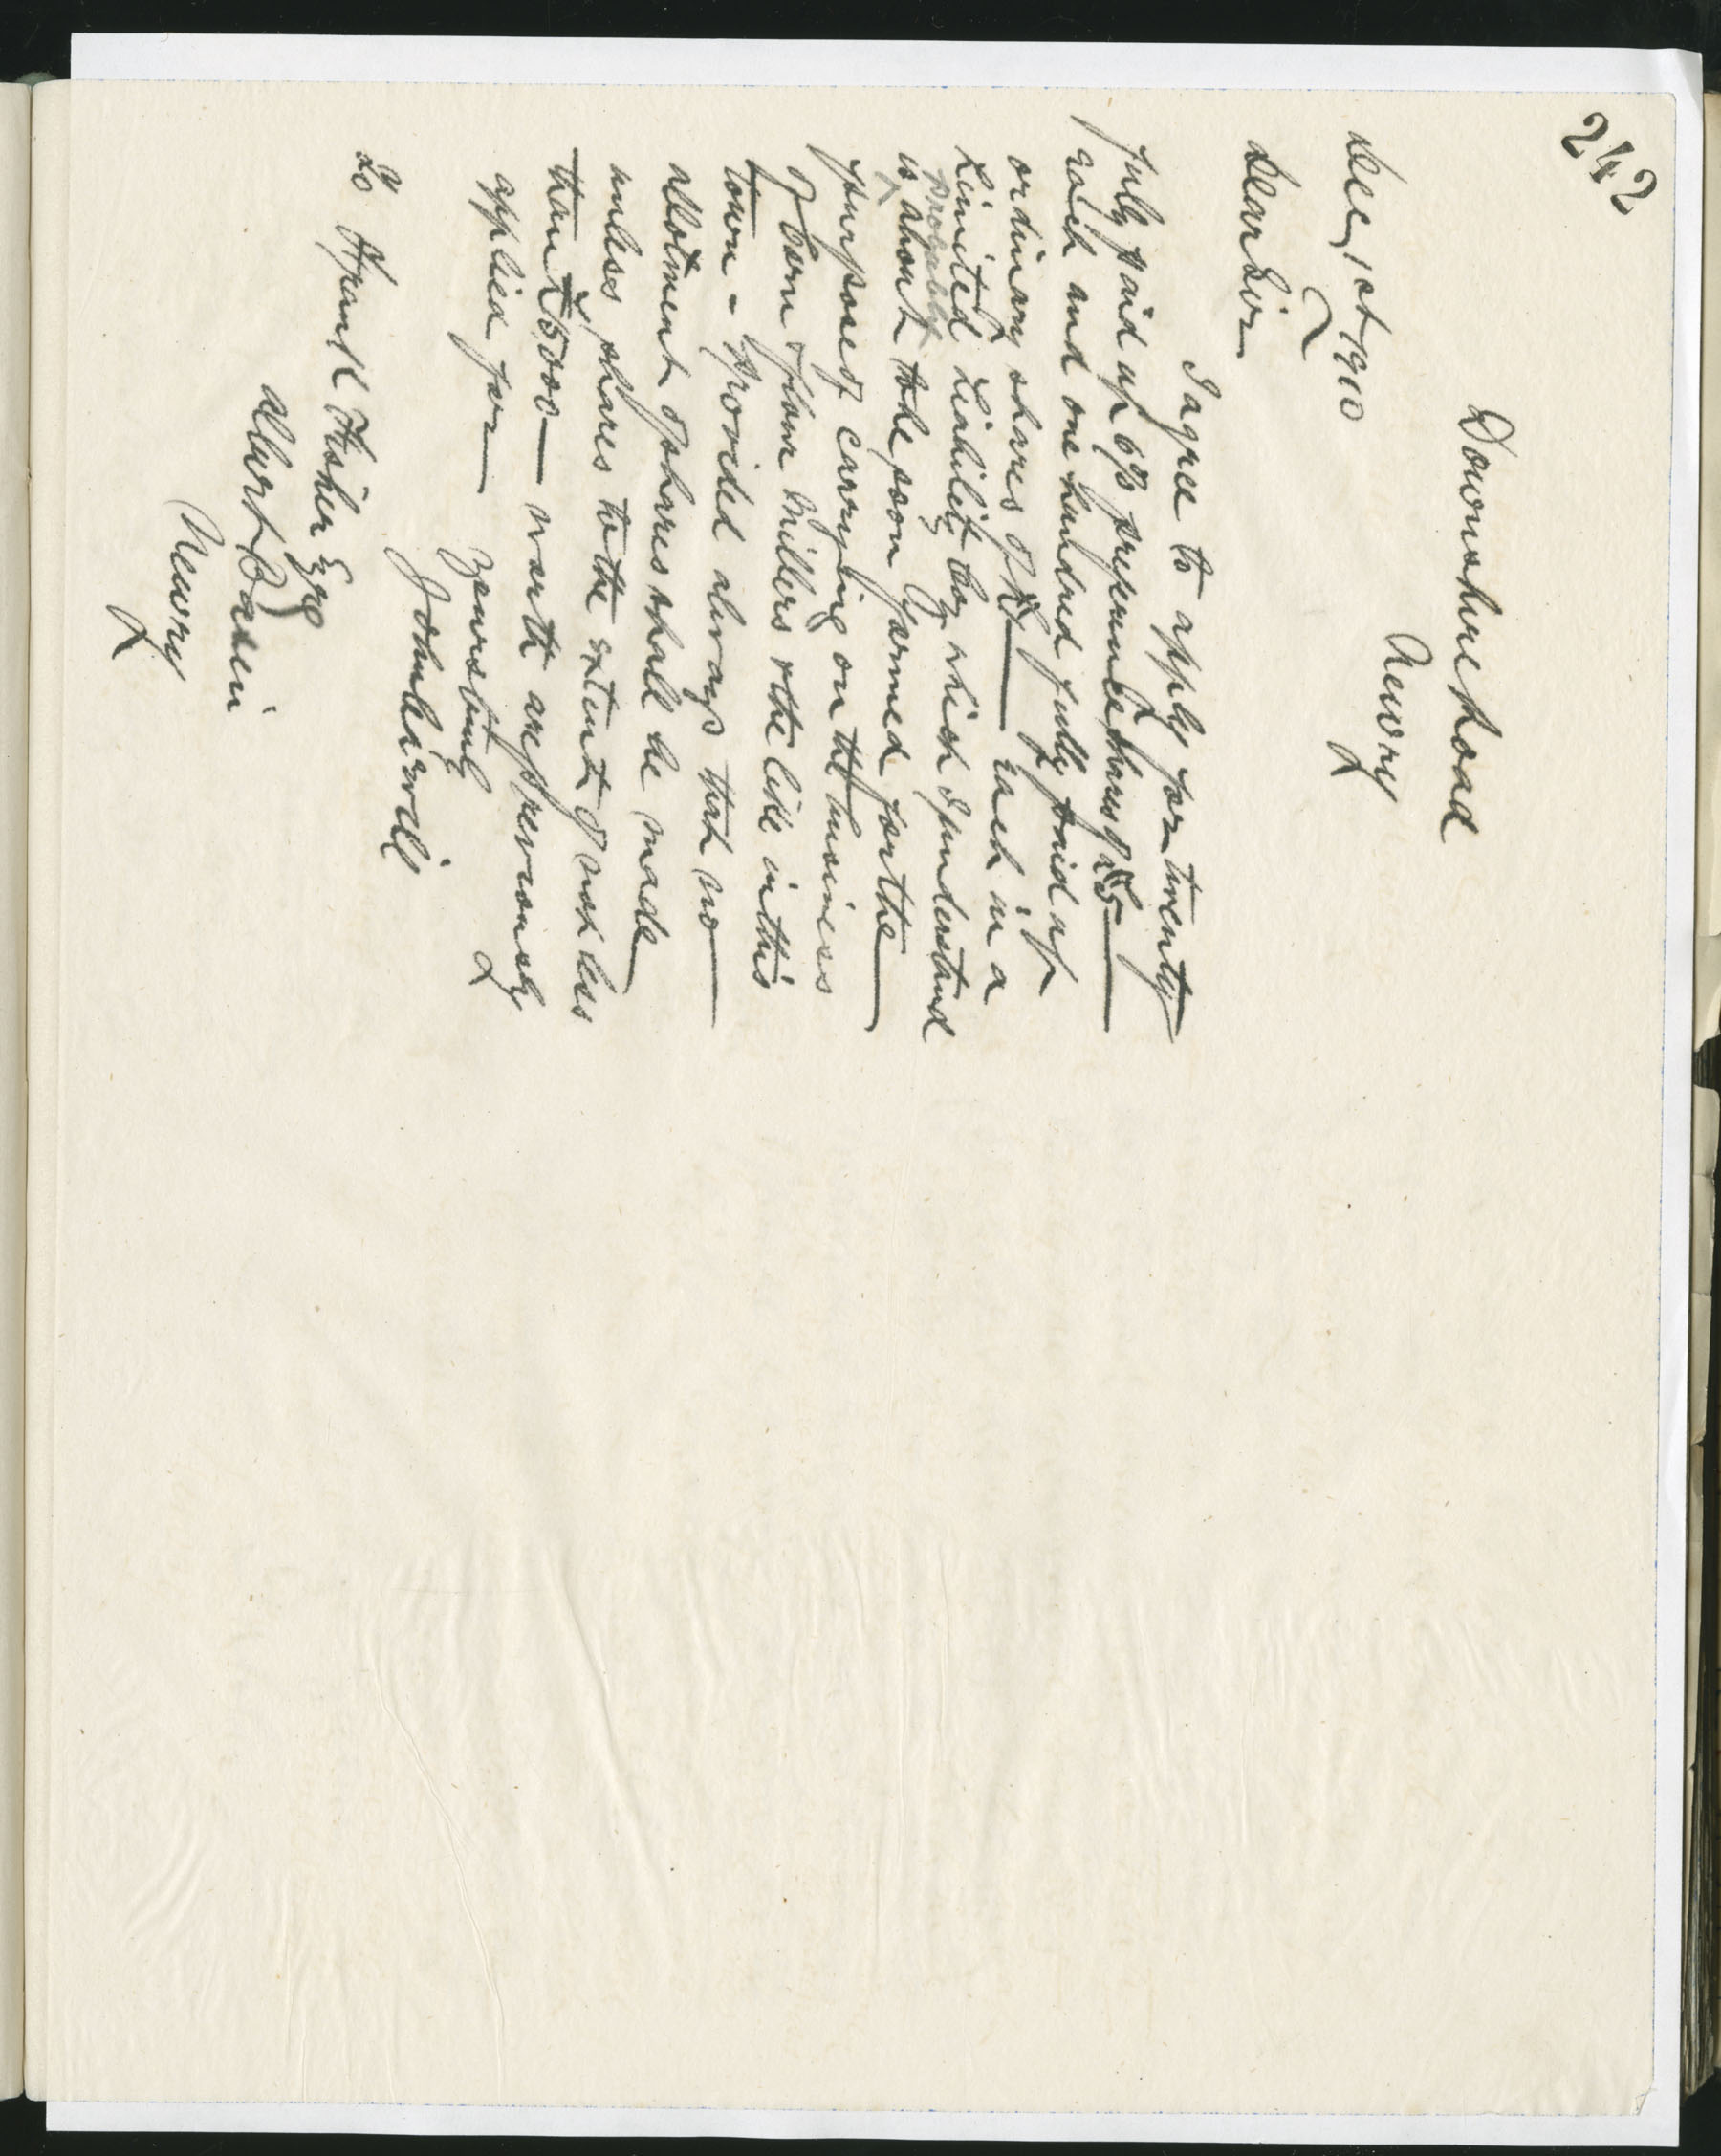 242
Downshire Road
Newry
Dec 1st 1910
Dear Sir
I agree to apply for twenty
fully paid up 6% preference shares of £5
each and one hundred fully paid up
ordinary shares of £1 each in a
Limited Liability Coy which I understand
probably
is about to be soon formed for the
purpose of carrying on the business
of Corn & flour Millers & the like in this
town - Provided always that no
allotment of shares shall be made
unless shares to the extent of not less
than £5000 worth are previously
applied for
Yours truly
To Frank Fisher Esqe
Albert Basin
Newry